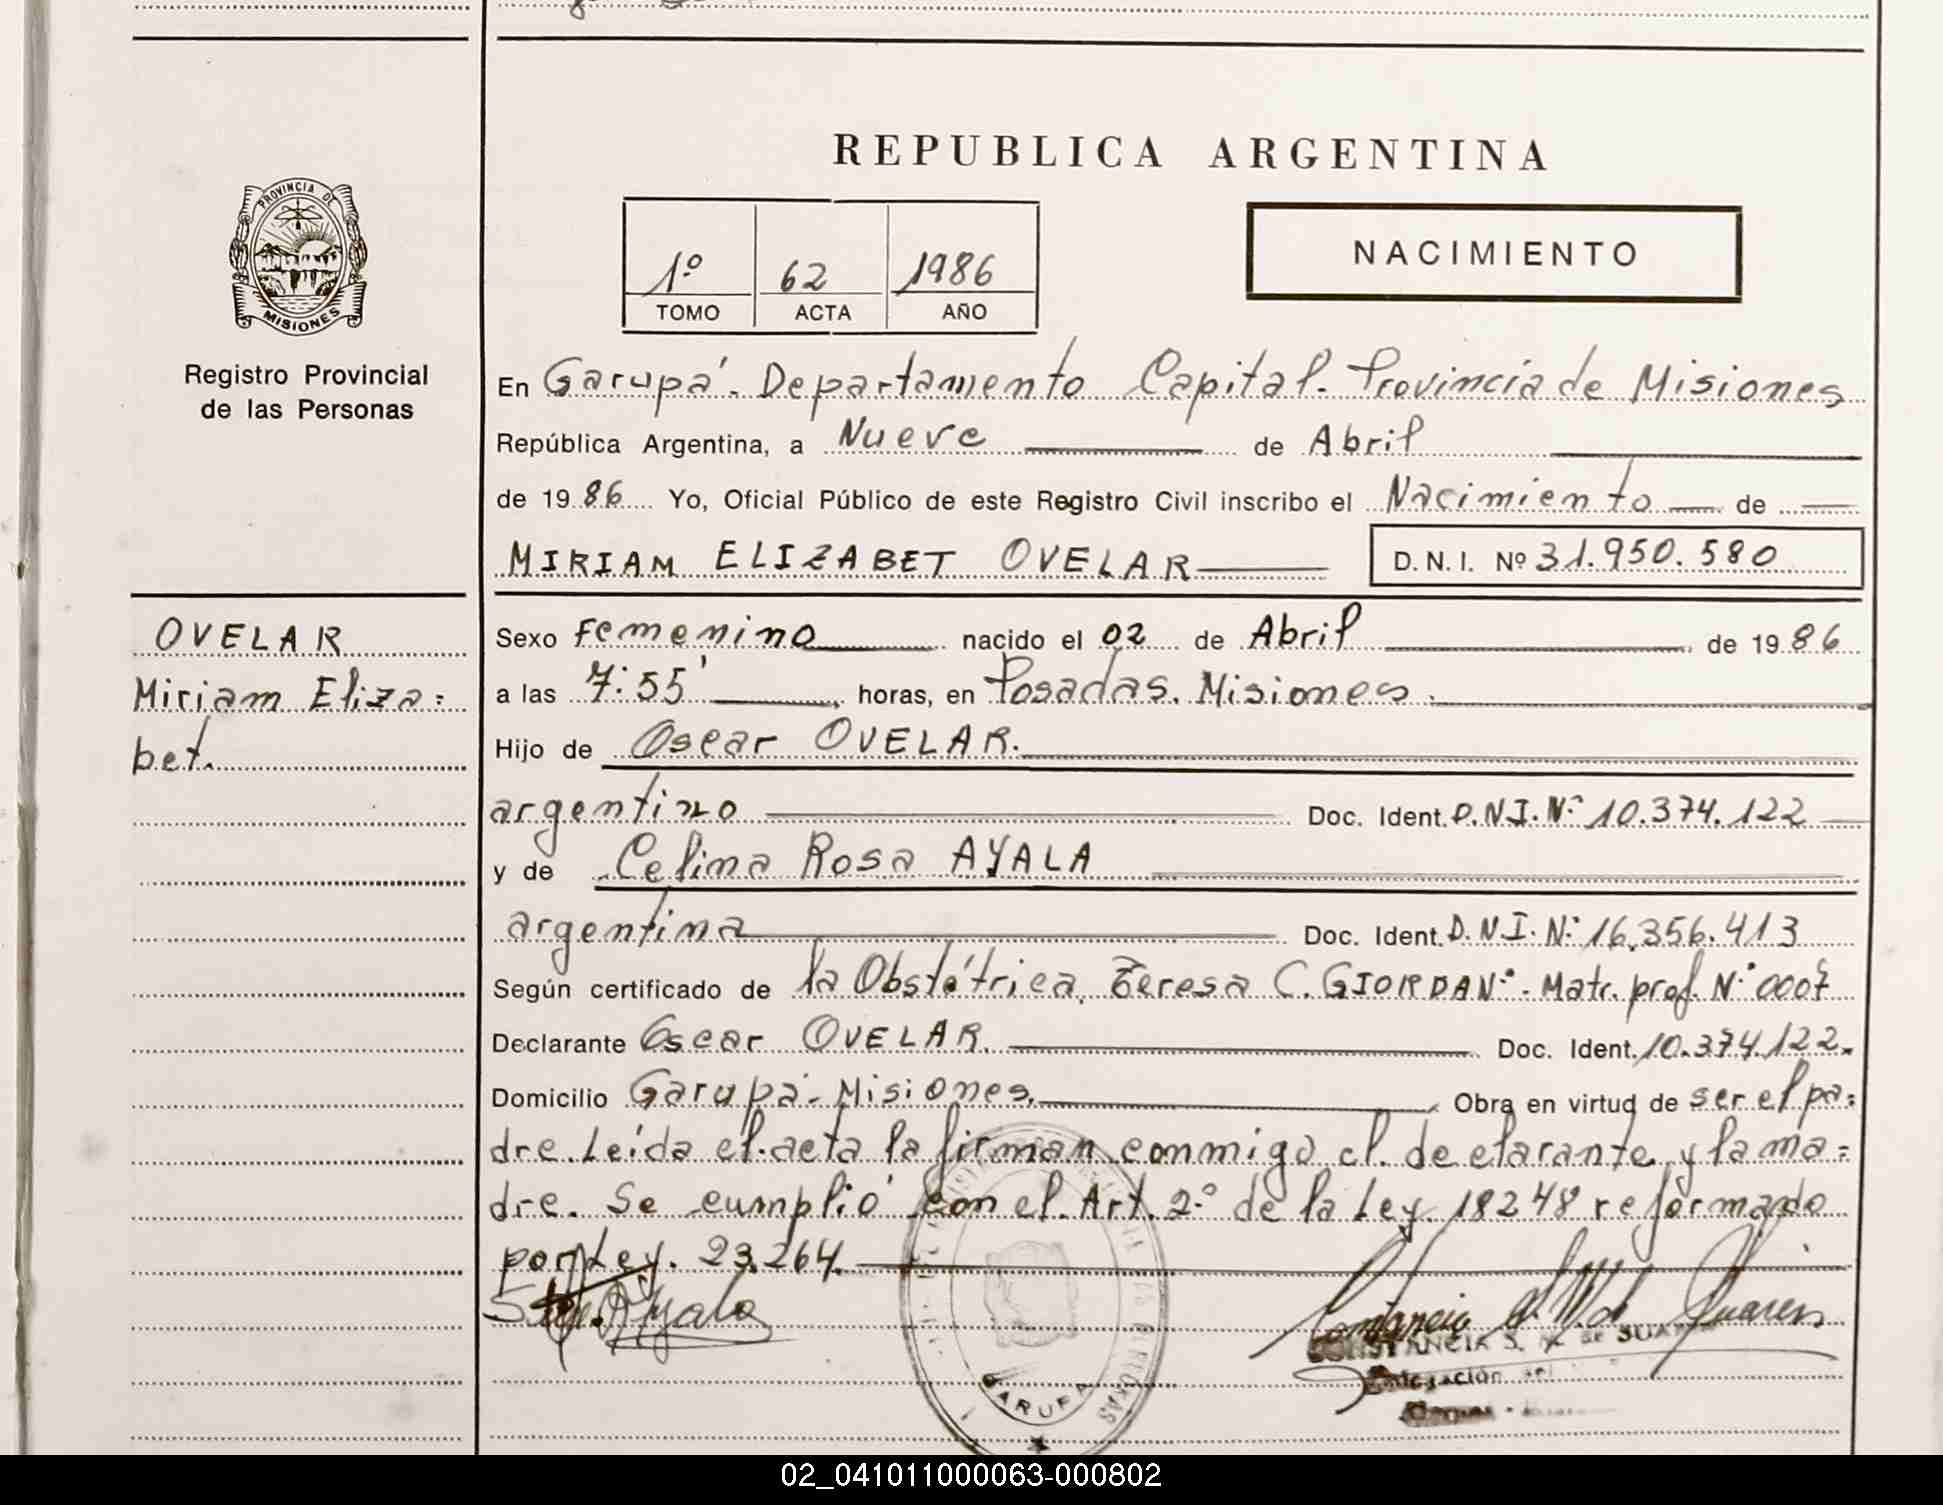 REPUBLICA ARGENTINA
PROVINCIA DE
MISIONES
Registro Provincial
de las Personas
1º 62 1986
TOMO ACTA AÑO
NACIMIENTO
En Garupá. Departamento Capital. Provincia de Misiones
República Argentina, a Nueve de Abril
de 1986 Yo, Oficial Público de este Registro Civil inscribo el Nacimiento de
MIRIAM ELIZABET OVELAR D.N.I. Nº 31.950.580
OVELAR
Miriam Eliza=
bet.
Sexo Femenino nacido el 02 de Abril de 1986
a las 7:55' horas, en Posadas. Misiones.
Hijo de Oscar OVELAR.
argentino Doc. Ident. D.N.I. Nº 10.374.122
y de Celima Rosa AYALA
argentina Doc. Ident. D.N.I. Nº 16.356.413
Según certificado de la Obstétrica, Teresa C. GIORDANº. Matr. prof. Nº 0007
Declarante Oscar OVELAR. Doc. Ident. 10.374.122.
Domicilio Garupá- Misiones. Obra en virtud de ser el pa=
dre. Leída el acta la firman conmigo el declarante y la ma=
dre. Se cumplió con el Art. 2º de la Ley 18248 reformado
por Ley. 23.264.
Ayala
CONSTANCIA S. DE SUAREZ
Delegación
GARUPA
02_041011000063-000802